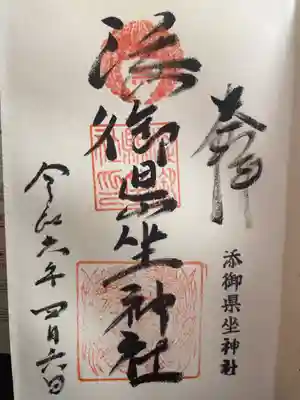 奉拝
添御県坐神社
添御県坐神社
令和六年四月六日